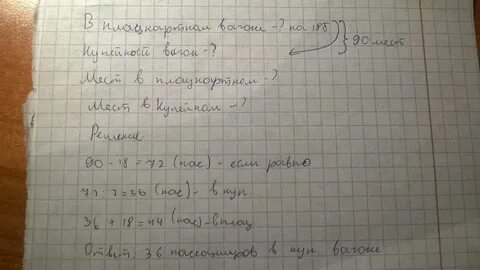 В плацкартном вагоне -? на 18б
Купейный вагон -?
90 мест
Мест в плацкартном -?
Мест в Купейном -?
Решение:
90 - 18 = 72 (пас) - если равно
72 : 2 = 36 (пас) - в куп.
36 + 18 = 44 (пас) - в плац
Ответ: 36 пассациров в куп. вагоне